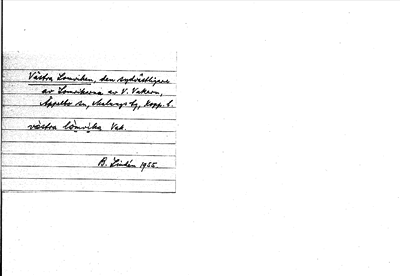 Västra Lomviken, den sydvästligare
av Lomvikarna av V. Vakern,
Äppelbo sn, Malungs tg, Kopp. l.
västra lòmvìka Vak.
B. Lindén 1955